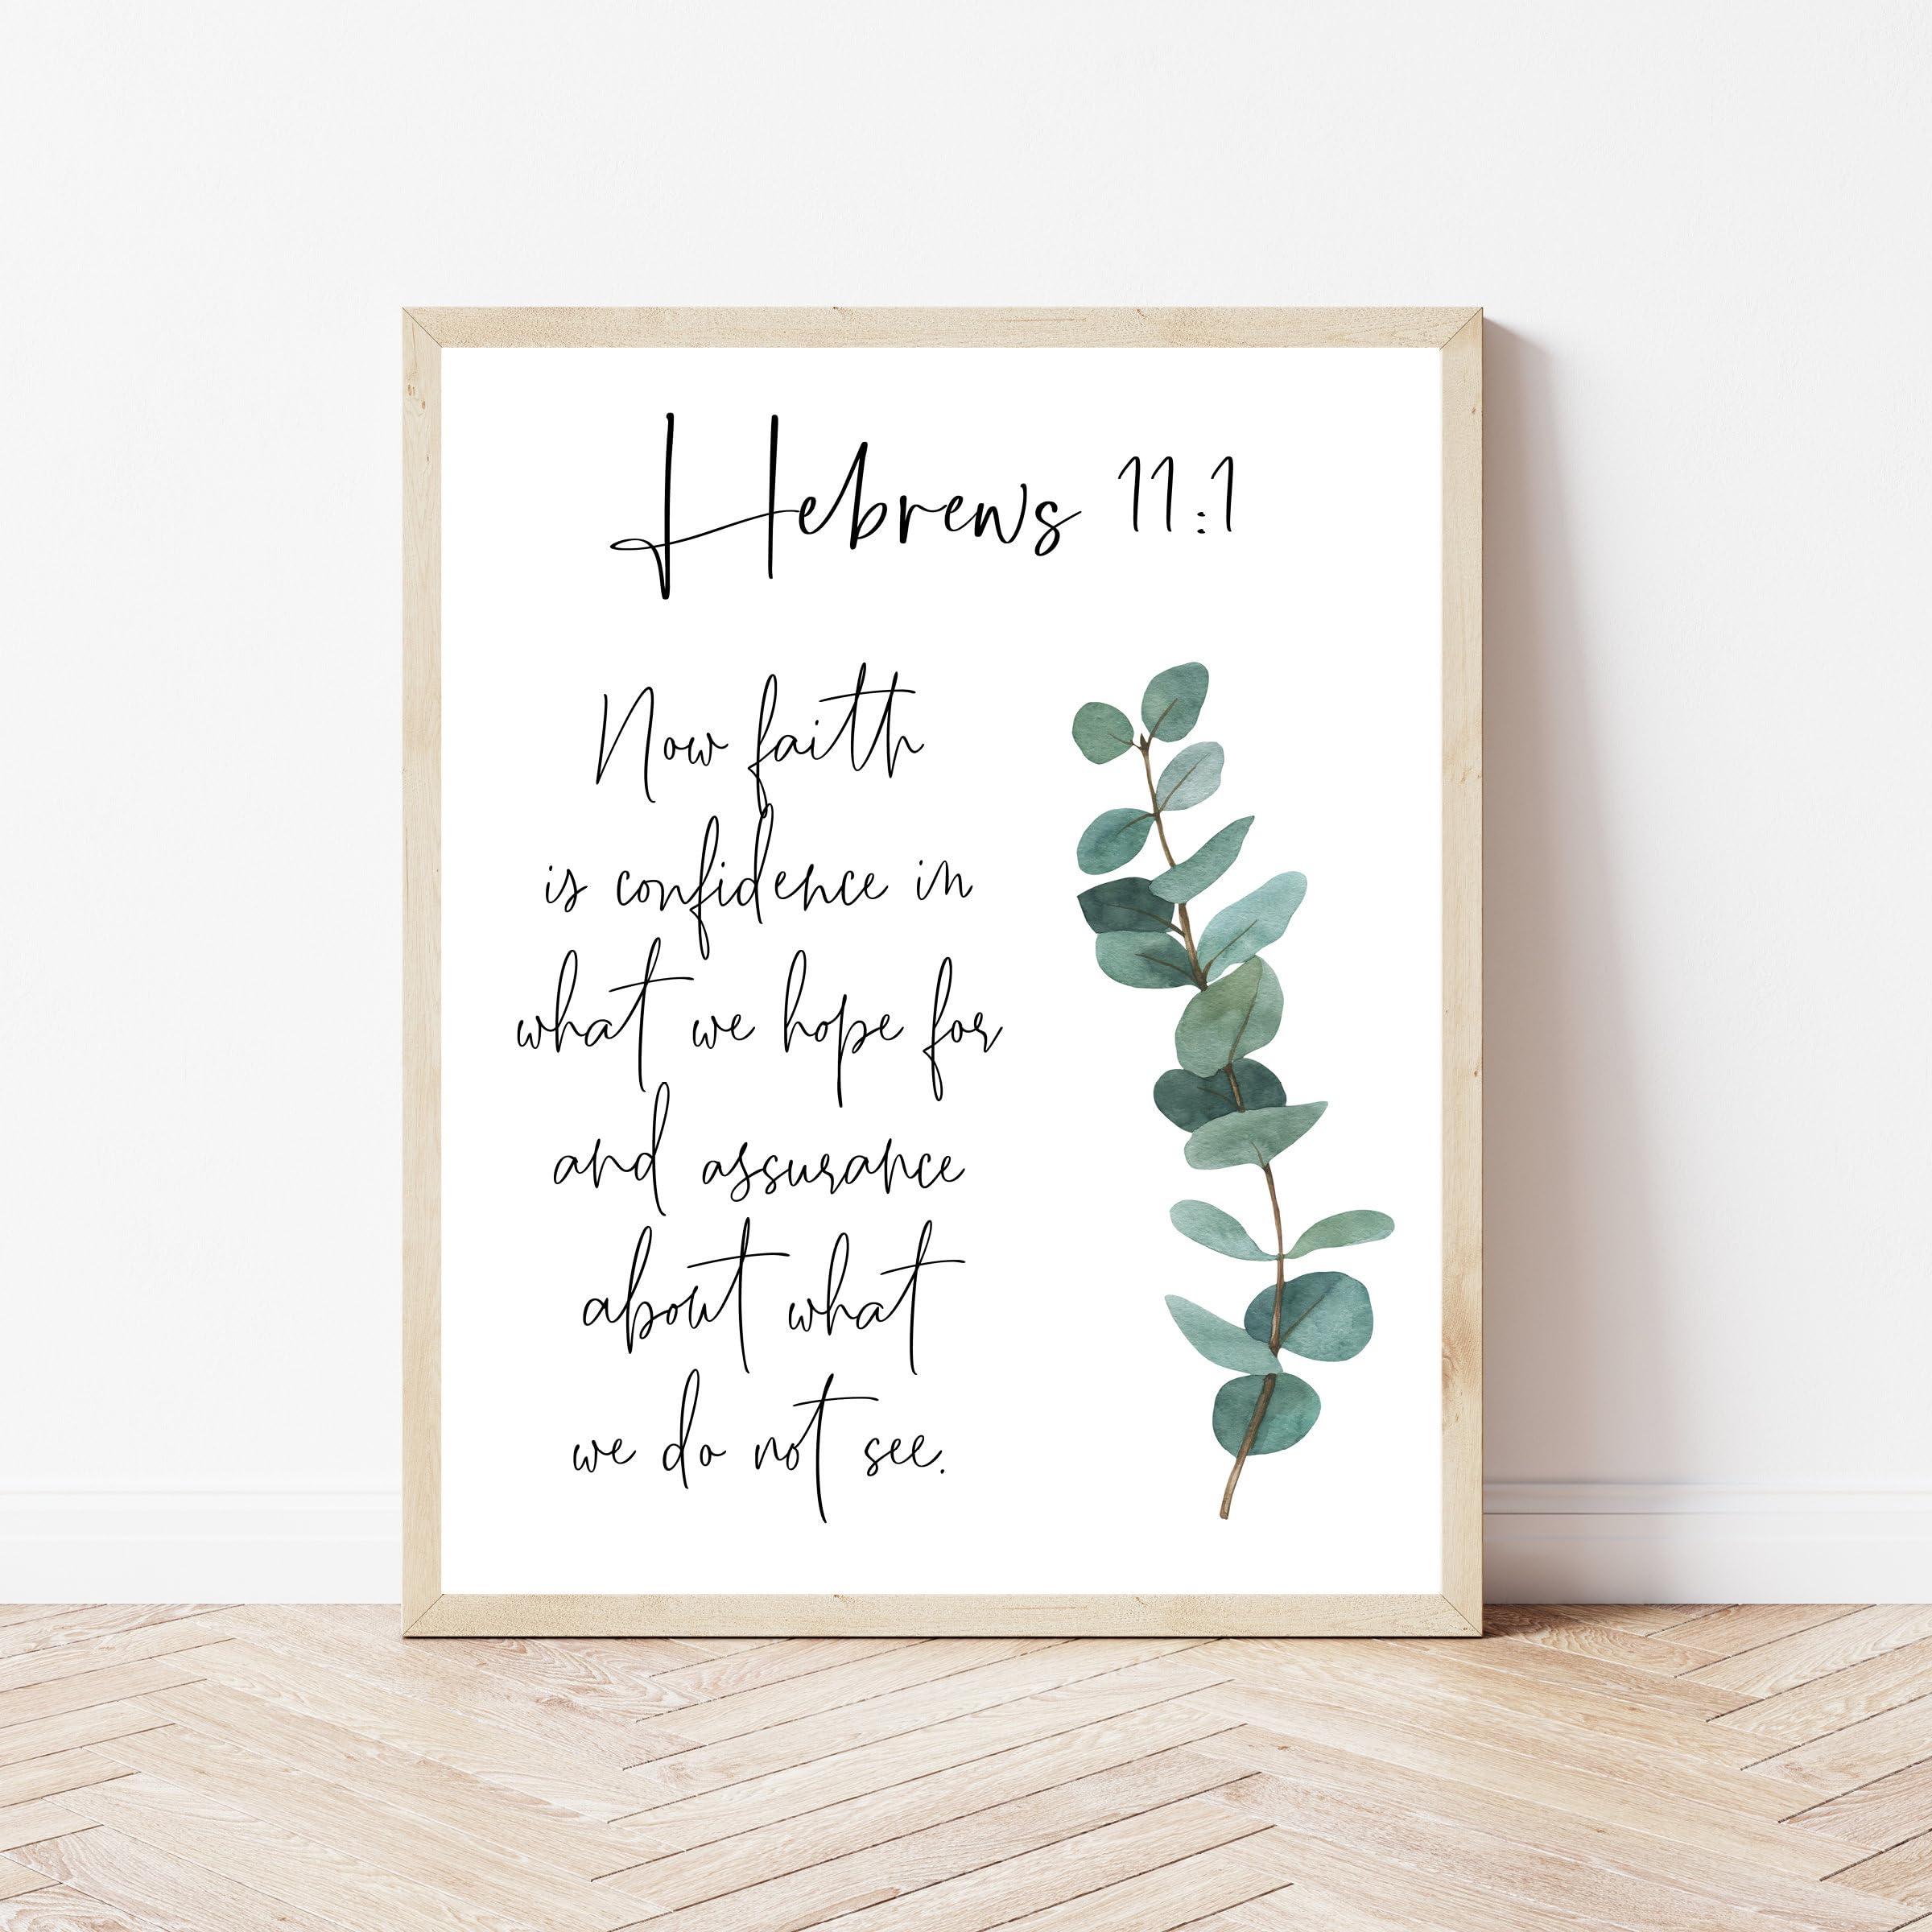 Hebrews 11:1
Now faith
is confidence in
what we hope for
and assurance
about what
we do not see.